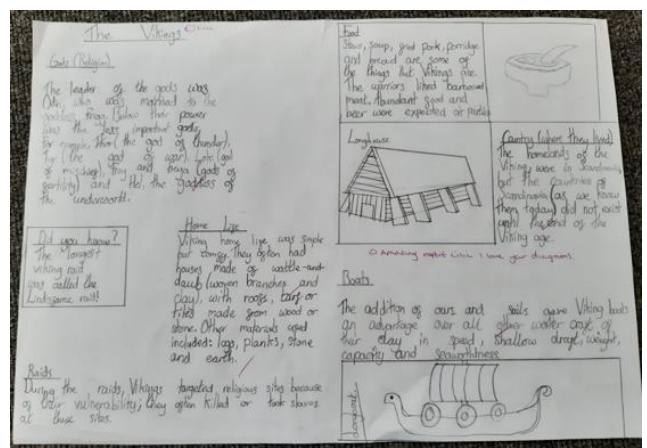 The Vikings
Gods (Religion)
The leader of the gods was
Odin, who was married to the
goddess Frigg. Below their power
was the less important gods,
for example, Thor (the god of thunder),
Tyr (the god of war), Loki (god
of mischief), Frey and Freyja (gods of
fertility) and Hel, the goddess of
the underworld.
Did you know?
The longest
viking raid
was called the
Lindisfarne raid!
Home Life
Viking home life was simple
but comfy. They often had
houses made of wattle-and-
daub (woven branches and
clay), with roofs, turf or
tiles made from wood or
stone. Other materials used
included: logs, planks, stone
and earth.
Raids
During the raids, Vikings targeted religious sites because
of their vulnerability; they often killed or took slaves
at these sites.
Food
Stews, soup, fried pork, porridge
and bread are some of
the things that Vikings ate.
The warriors liked barbecued
meat. Abundant food and
beer were expected at parties
Longhouse
Country (where they lived)
The homelands of the
Viking were in Scandinavia,
but the countries of
Scandinavia (as we know
them today) did not exist
until the end of the
Viking age.
Amazing I love your diagrams.
Boats
The addition of oars and sails gave Viking boats
an advantage over all other water craft of
their day in speed, shallow draft, weight,
capacity and seaworthiness
Longboats